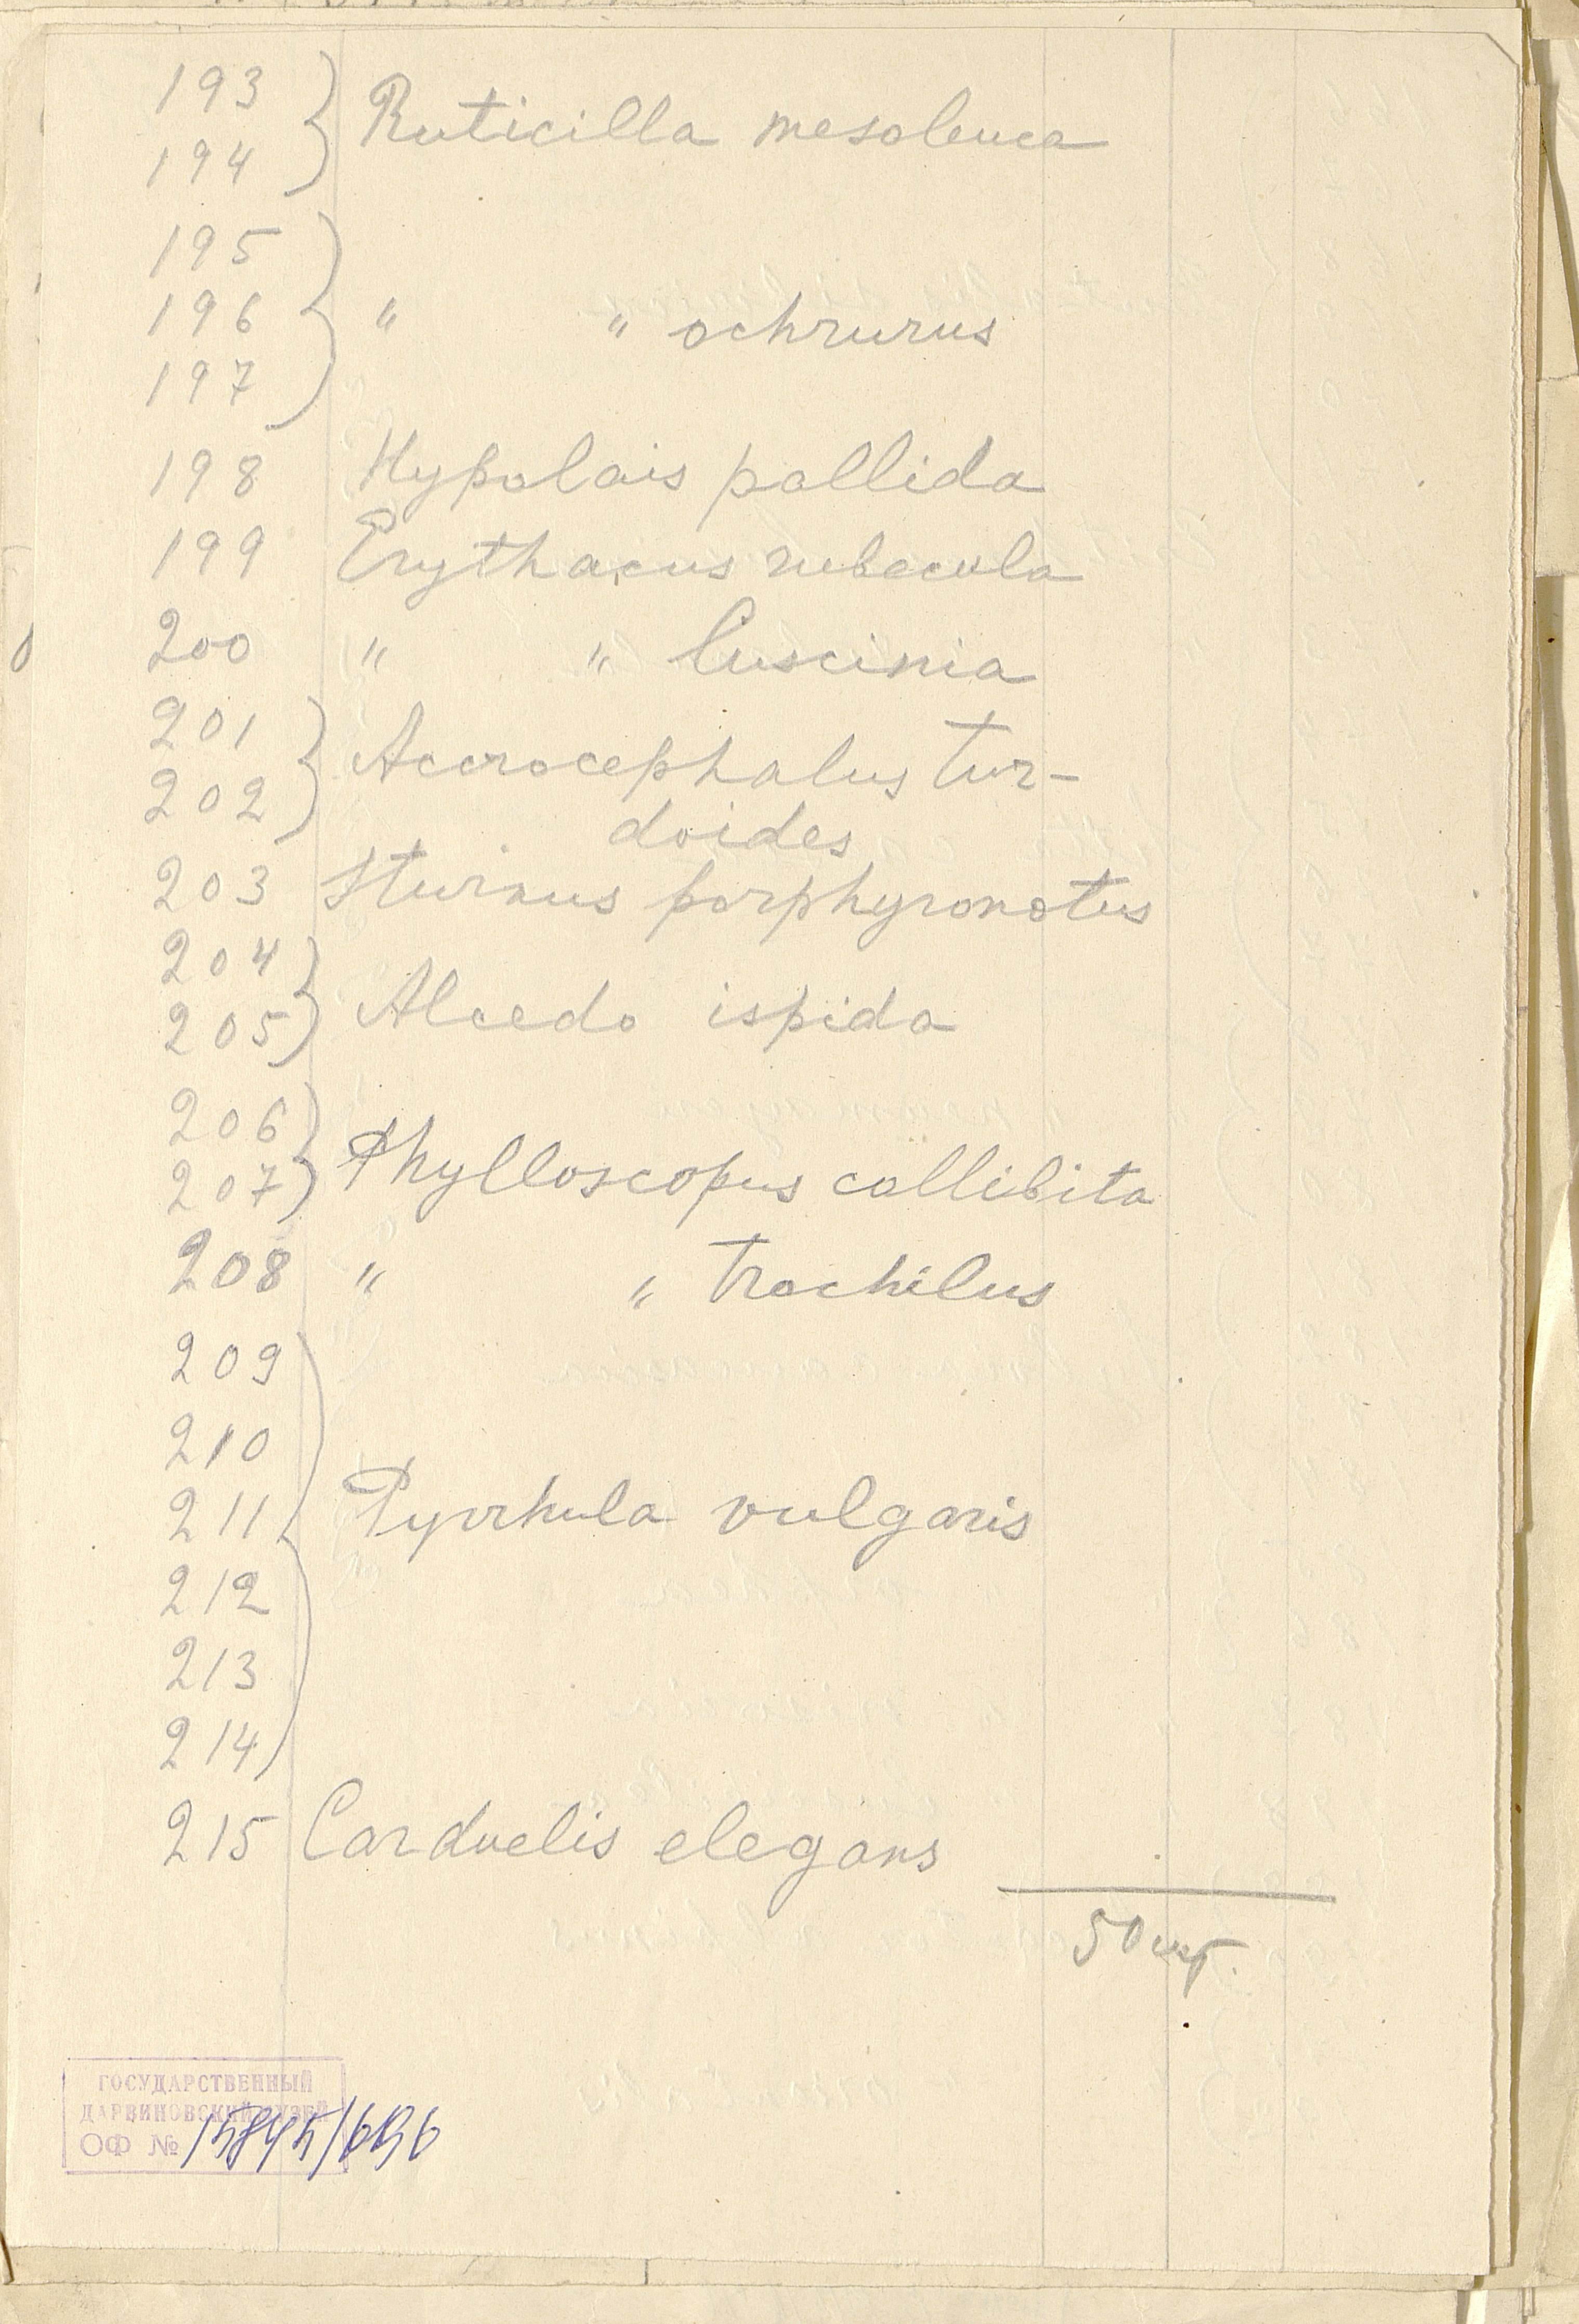 193
194 } Ruticilla mesoleuca
195
196 } " " ochrurus
197
198 Hypolais pallida
199 Erythacus rubecula
200 " " luscinia
201
202 } Accrocephalus tur-
doides
203 Sturnus porphyronotus
204
205 } Alcedo ispida
206
207 } Phylloscopus collibita
208 " " trochilus
209
210
211 } Pyrrhula vulgaris
212
213
214
215 Carduelis elegans
50 шт.
ГОСУДАРСТВЕННЫЙ
ДАРВИНОВСКИЙ МУЗЕЙ
ОФ №